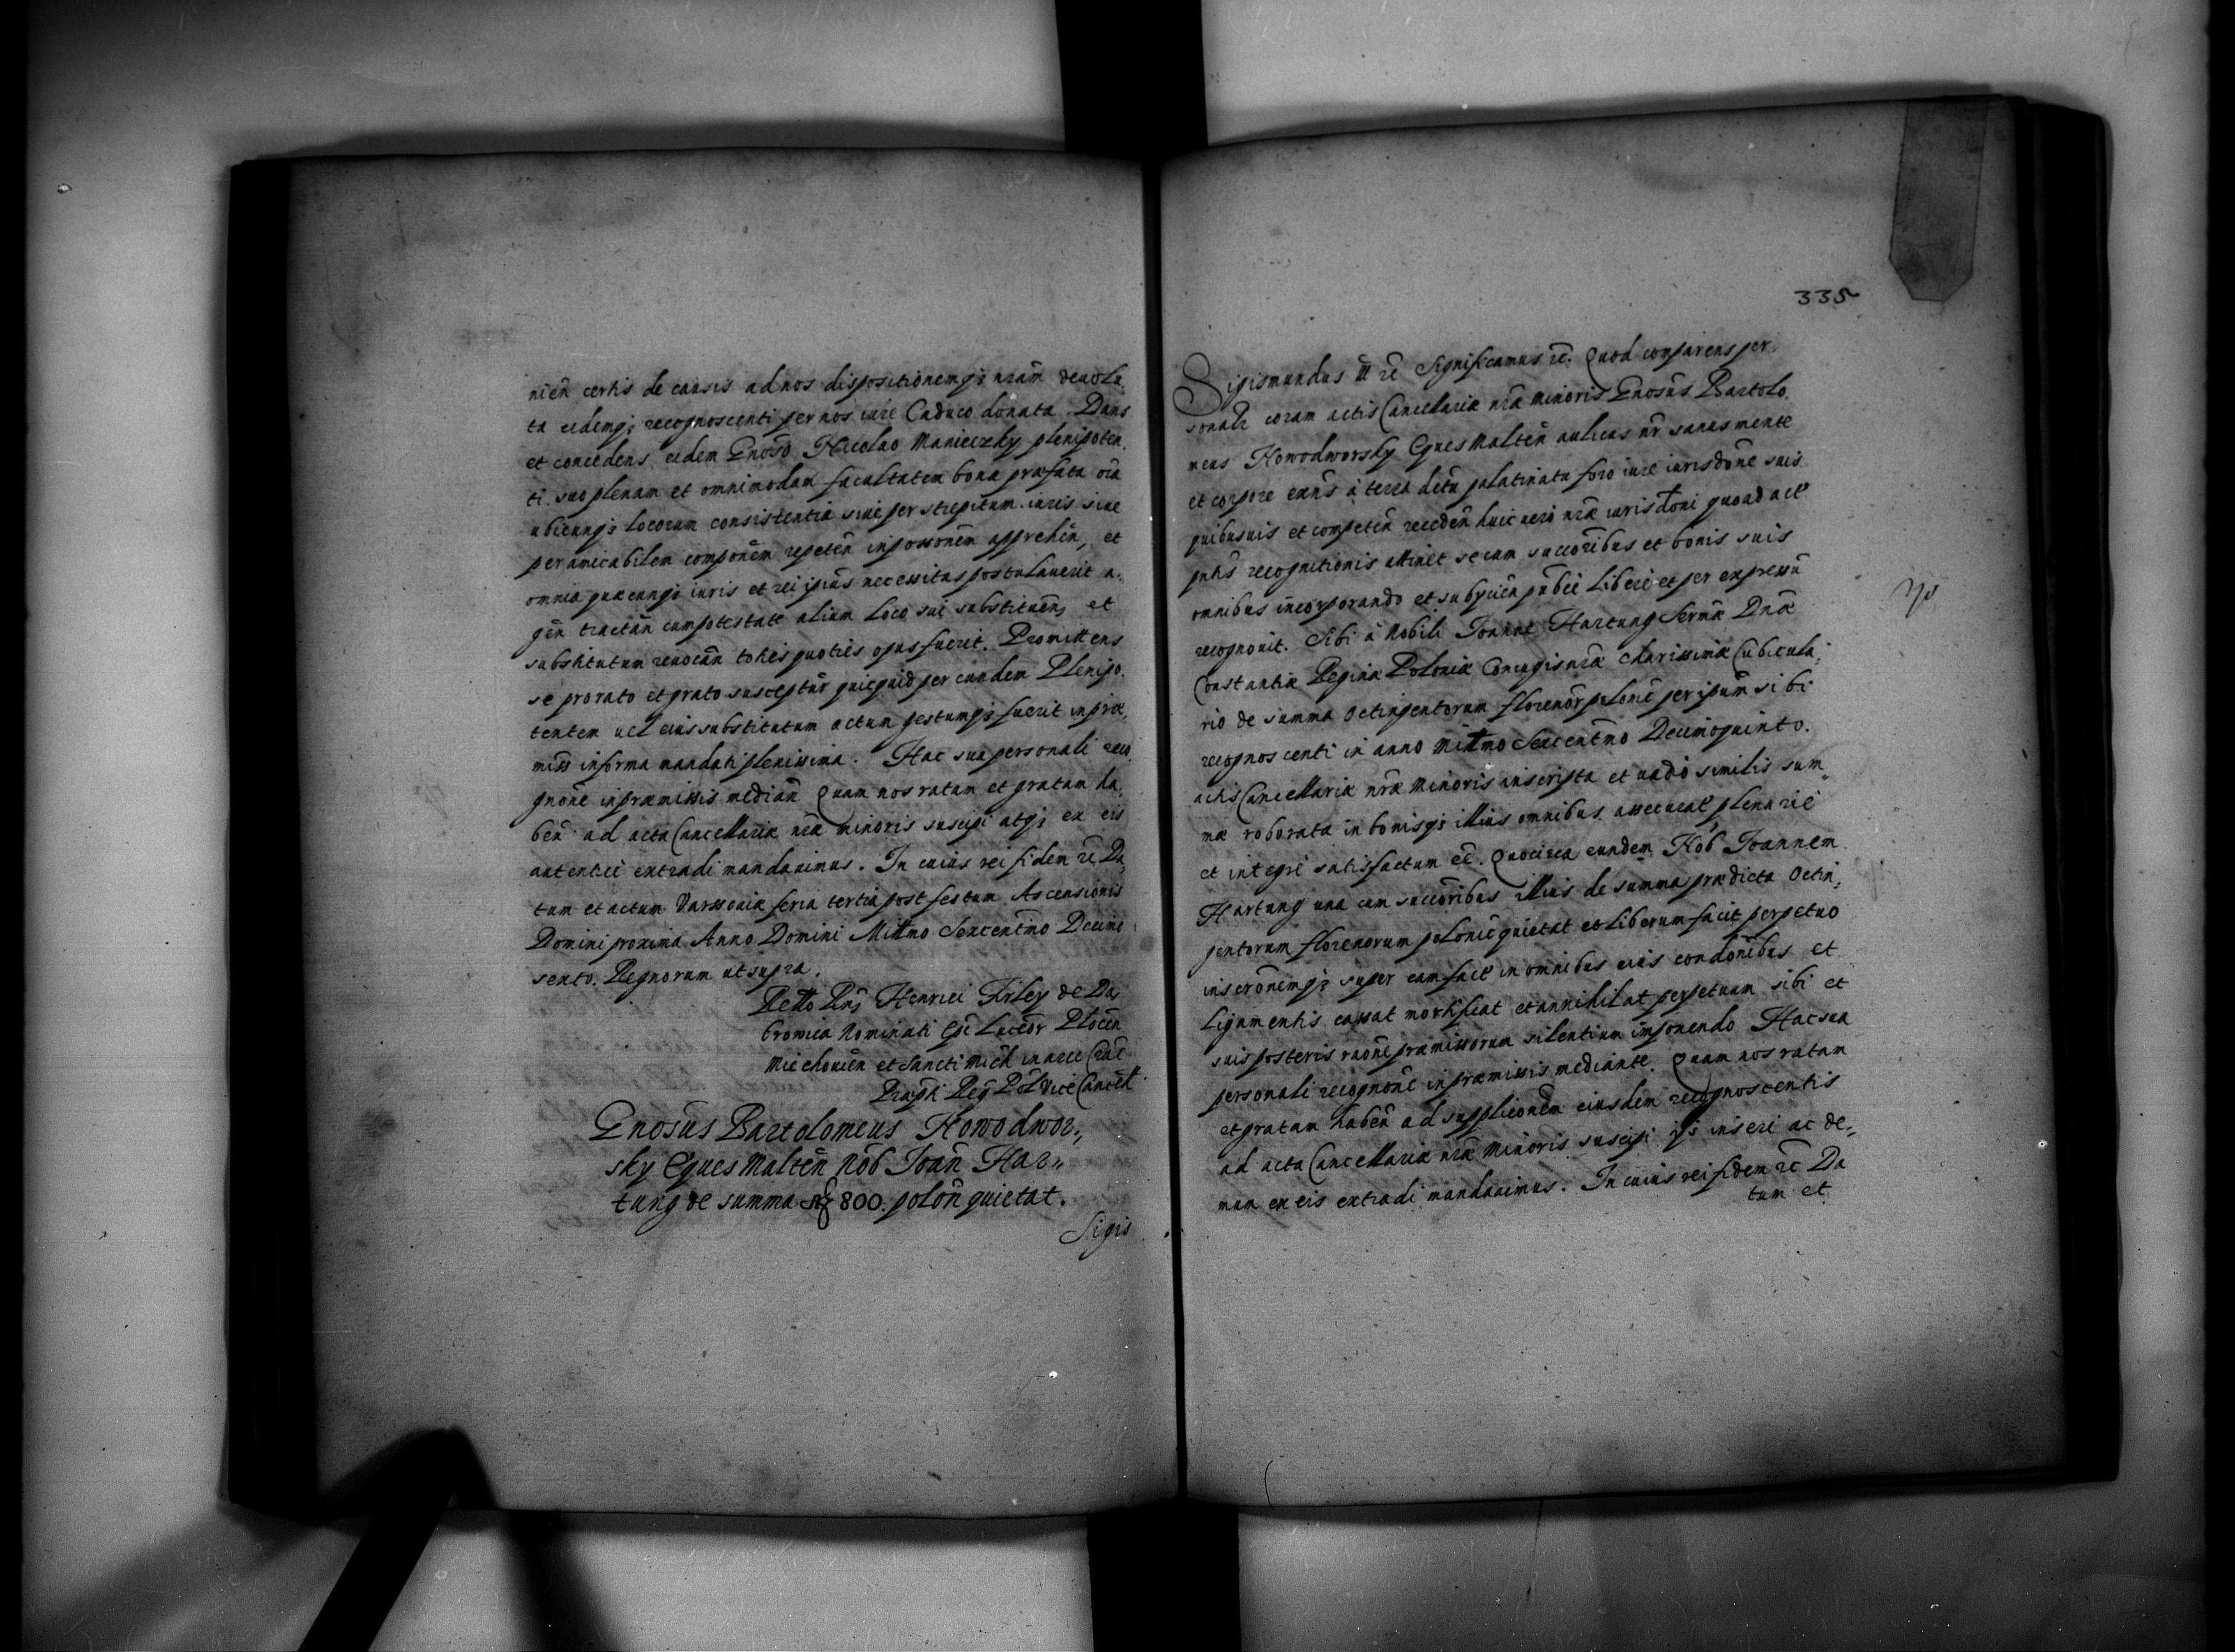 nień certis de causis ad nos dispositionemq; nrãm deuolu,
ta eidemq; recognoscenti per nos iure Caduco donata. Dans
et concedens eidem Gnoso Nicolao Manieczky plenipoten,
ti suo plenam et omnimodam facultatem bona præfata oĩa
ubicunq; locorum consistentia siue per strepitum iuris siue
per amicabilem componẽm repetẽn in possonẽm apprehẽn, et
omnia quæcunq; iuris et rei ipiũs necessitas postulauerit a,
gẽn tractãn cum potestate alium loco sui substituẽn, et
substitutum reuocãn toties quoties opus fuerit. Promittens
se pro rato et grato susceptũr quicquid per eundem Plenipo,
tentem uel eius substitutum actum gestumq; fuerit in præ,
miss in forma mandati plenissima. Hac sua personali reco,
gnonẽ in præmissis mediañ Quam nos ratam et gratam ha,
bẽn ad acta Cancellariæ nrẽ minoris suscipi atq; ex eis
autenticè extradi mandauimus. In cuius rei fidem rẽ Da,
tum et actum Varssouiæ feria tertia post festum Ascensionis
Domini proxima Anno Domini Millmo Sexcentm̃o Decimo
sexto. Regnorum ut supra.
Rello Rñs Henrici Firley de Da,
browica Nominati Epĩ Luceõr Plocẽn
Miechouiẽn et Sancti Mich in arce Crac̃
Præpti Reg̃ Pol Vice Cancell
Gnosũs Bartolomeus Nowodwor,,
sky Eques Maltẽn Nõb Joañ Har,,
tung de summa fl 800. polõn quietat.
Sigis
335
Sigismundus III rẽ Significamus rẽ. Quod comparens per,
sonalr coram actis Cancellariæ nrẽ minoris Gnosũs Bartolo,
meus Nowodworsky Eques Maltẽn aulicus nr̃ sanus mente
et corpore exñs à terra districtu palatinatu foro iure iurisdõne suis
quibusuis et competẽn recedẽn huic uero nrẽ iurisdõni quoad act̃
pntĩs recognitionis attinet se cum succõribus et bonis suis
omnibus incorporando et subijciẽn publicè liberè et per expressũ
recognouit. Sibi à Nobili Joanne Hartung Sermæ Dnæ
Constantiæ Reginæ Poloniæ Coniugis nræ charissimæ Cubicula,
rio de summa Octingentorum florenõr polonic̃ per ipsũm sibi
recognoscenti in anno Millmo Sexcentm̃o Decimoquinto.
actis Cancellariæ nrẽ Minoris inscripta et uadio similis sum,,
mæ roborata in bonisq; illius omnibus assecurat̃ plenariè
et integrè satisfactum eẽ. Quocirca eundem Nob̃ Joannem
Hartung una cum succõribus illius de summa prædicta Octin,
gentorum florenorum polonic̃ quietat et liberum facit perpetuo
inscronẽmq; super eam fact̃ in omnibus eius condonĩbus et
ligamentis cassat mortificat et annihilat perpetuum sibi et
suis posteris raonẽ præmissorum silentium imponendo Hac sua
personali recognonẽ in præmissis mediante. Quam nos ratam
et gratam habẽn ad supplicõnem eiusdem recognoscentis
ad acta Cancellariæ nrẽ Minoris suscipi ijs inseri ac de,,
mum ex eis extradi mandauimus. In cuius rei fidem rẽ Da
tum et